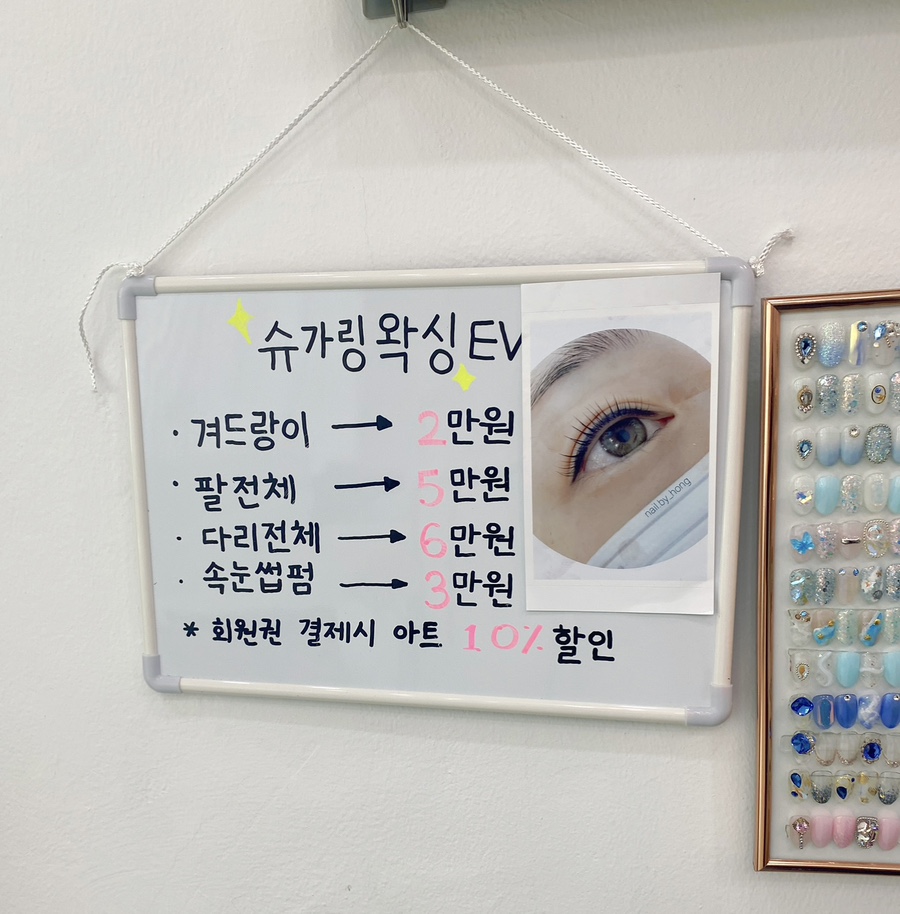 슈가링왁싱 EV
· 겨드랑이 → 2만원
· 팔전체 → 5만원
· 다리전체 → 6만원
· 속눈썹펌 → 3만원
* 회원권 결제시 아트 10% 할인
nail.by_hong